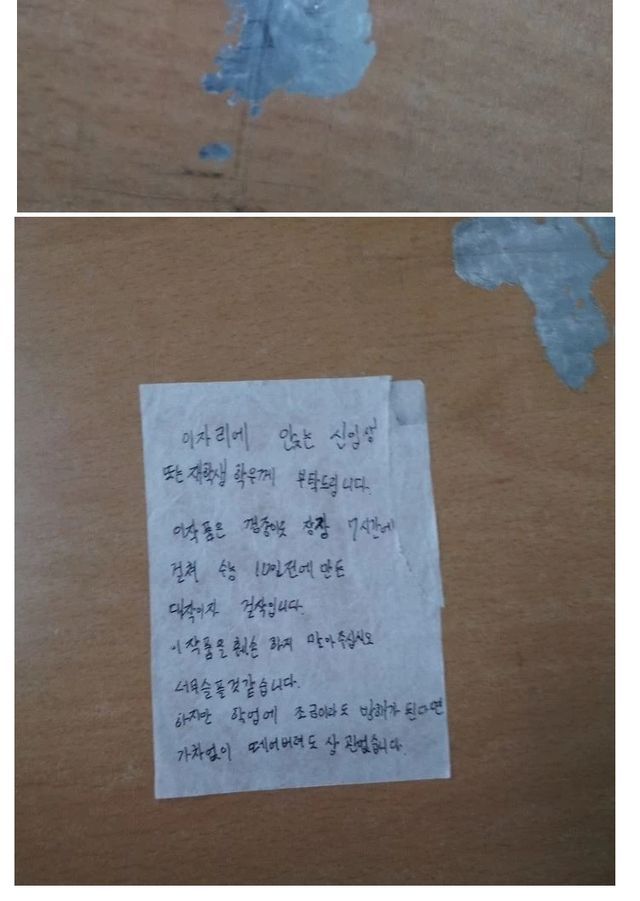 이자리에 앉는 신입생
또는 재학생 학우께 부탁드립니다.
이작품은 껌종이로 장장 7시간에
걸쳐 수능 10일전에 만든
대작이자 걸작입니다.
이 작품을 훼손 하지 말아주십시오
너무슬플것같습니다.
하지만 학업에 조금이라도 방해가 된다면
가차없이 떼어버려도 상관없습니다.